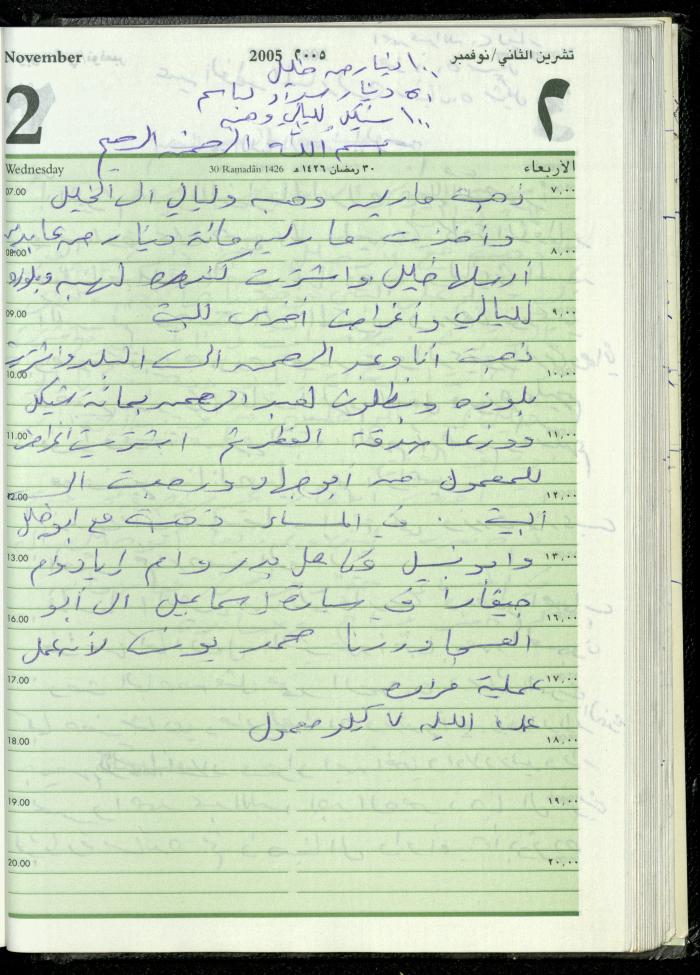 November 2005 ٢٠٠٥ تشرين الثاني/نوفمبر
١٠٠ دينار من خليل
٥٠ دينار سداد لباسم
١٠٠ شيكل لليالي وهبه
2 ٢
بسم الله الرحمن الرحيم
Wednesday 30 Ramadân 1426 ٣٠ رمضان ١٤٢٦ هـ الأربعاء
07.00 ذهبت ماريه وهبه وليالي الى الخليل ٧,٠٠
وأخذت ماريه مائة دينار من
08.00 ٨,٠٠
أرسلها خليل واشترت لهبه وبلوزه
09.00 لليالي وأغراض أخرى للبيت ٩,٠٠
ذهبت أنا وعبد الرحمن الى البلد واشتريت
10.00 ١٠,٠٠
بلوزه وبنطلون لعبد الرحمن بمائة شيكل
11.00 ووزعنا صدقة الفطر ثم اشتريت أغراض ١١,٠٠
للمعمول من أبو جهاد ورجعت الى
12.00 ١٢,٠٠
البيت . في المساء ذهبت مع ابو خليل
13.00 وابو نبيل وكامل بدر وام إياد وام ١٣,٠٠
في سيارة إسماعيل الى أبو
16.00 ١٦,٠٠
وزرنا محمد يونس لأنه عمل
17.00 عملية مراره ١٧,٠٠
عملنا الليله ٧ كيلو معمول
18.00 ١٨,٠٠
19.00 ١٩,٠٠
20.00 ٢٠,٠٠